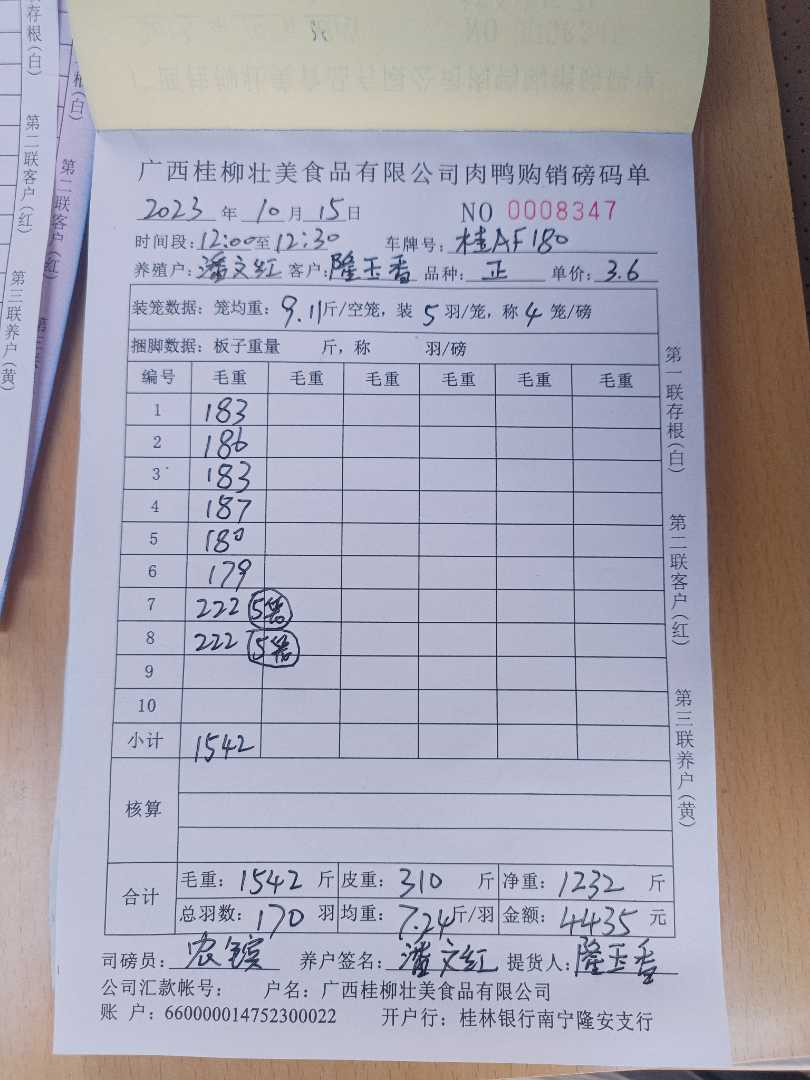 广西桂柳壮美食品有限公司肉鸭购销磅码单
2023 年 10 月 15 日 NO 0008347
时间段: 12:00 至 12:30 车牌号: 桂AF180
养殖户: 潘文红 客户: 隆玉香 品种: 正 单价: 3.6
装笼数据: 笼均重: 9.11 斤/空笼, 装 5 羽/笼, 称 4 笼/磅
捆脚数据: 板子重量 斤, 称 羽/磅
编号 毛重 毛重 毛重 毛重 毛重 毛重
1 183
2 186
3 183
4 187
5 180
6 179
7 222 5笼
8 222 5笼
9
10
小计 1542
核算
合计 毛重: 1542 斤 皮重: 310 斤 净重: 1232 斤
总羽数: 170 羽 均重: 7.24 斤/羽 金额: 4435 元
司磅员: 养户签名: 潘文红 提货人: 隆玉香
公司汇款帐号: 户名: 广西桂柳壮美食品有限公司
账 户: 660000014752300022 开户行: 桂林银行南宁隆安支行
第一联存根(白) 第二联客户(红) 第三联养户(黄)
存根(白) 第二联客户(红) 第三联养户(黄)
根(白) 第二联客户(红)